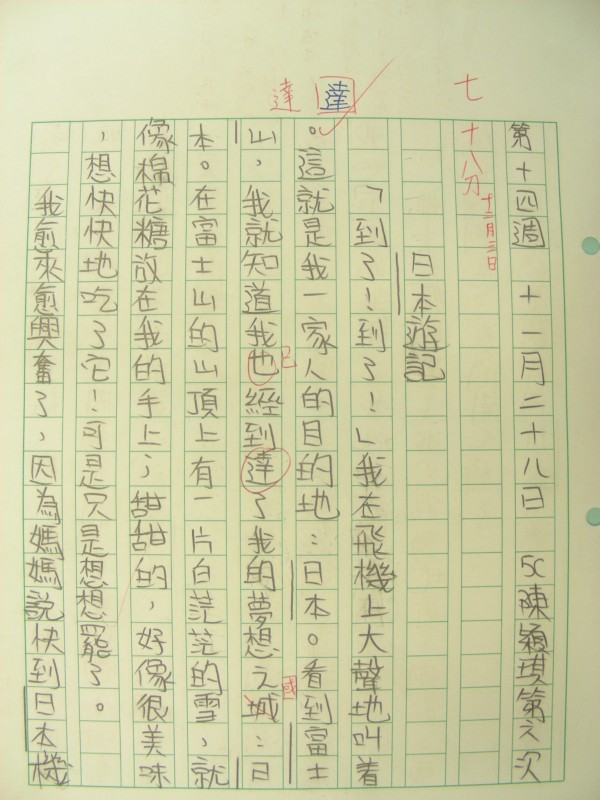 達 達
七十八分
十二月三日
第十四週 十一月二十八日 5C陳穎琪第六次
日本遊記
「到了!到了!」我在飛機上大聲地叫着
。這就是我一家人的目的地:日本。看到富士
山,我就知道我也經到達了我的夢想之城:日
已
國
本。在富士山的山頂上有一片白茫茫的雪,就
像棉花糖放在我的手上;甜甜的,好像很美味
,想快快地吃了它!可是只是想想罷了。
我愈來愈興奮了,因為媽媽說快到日本機